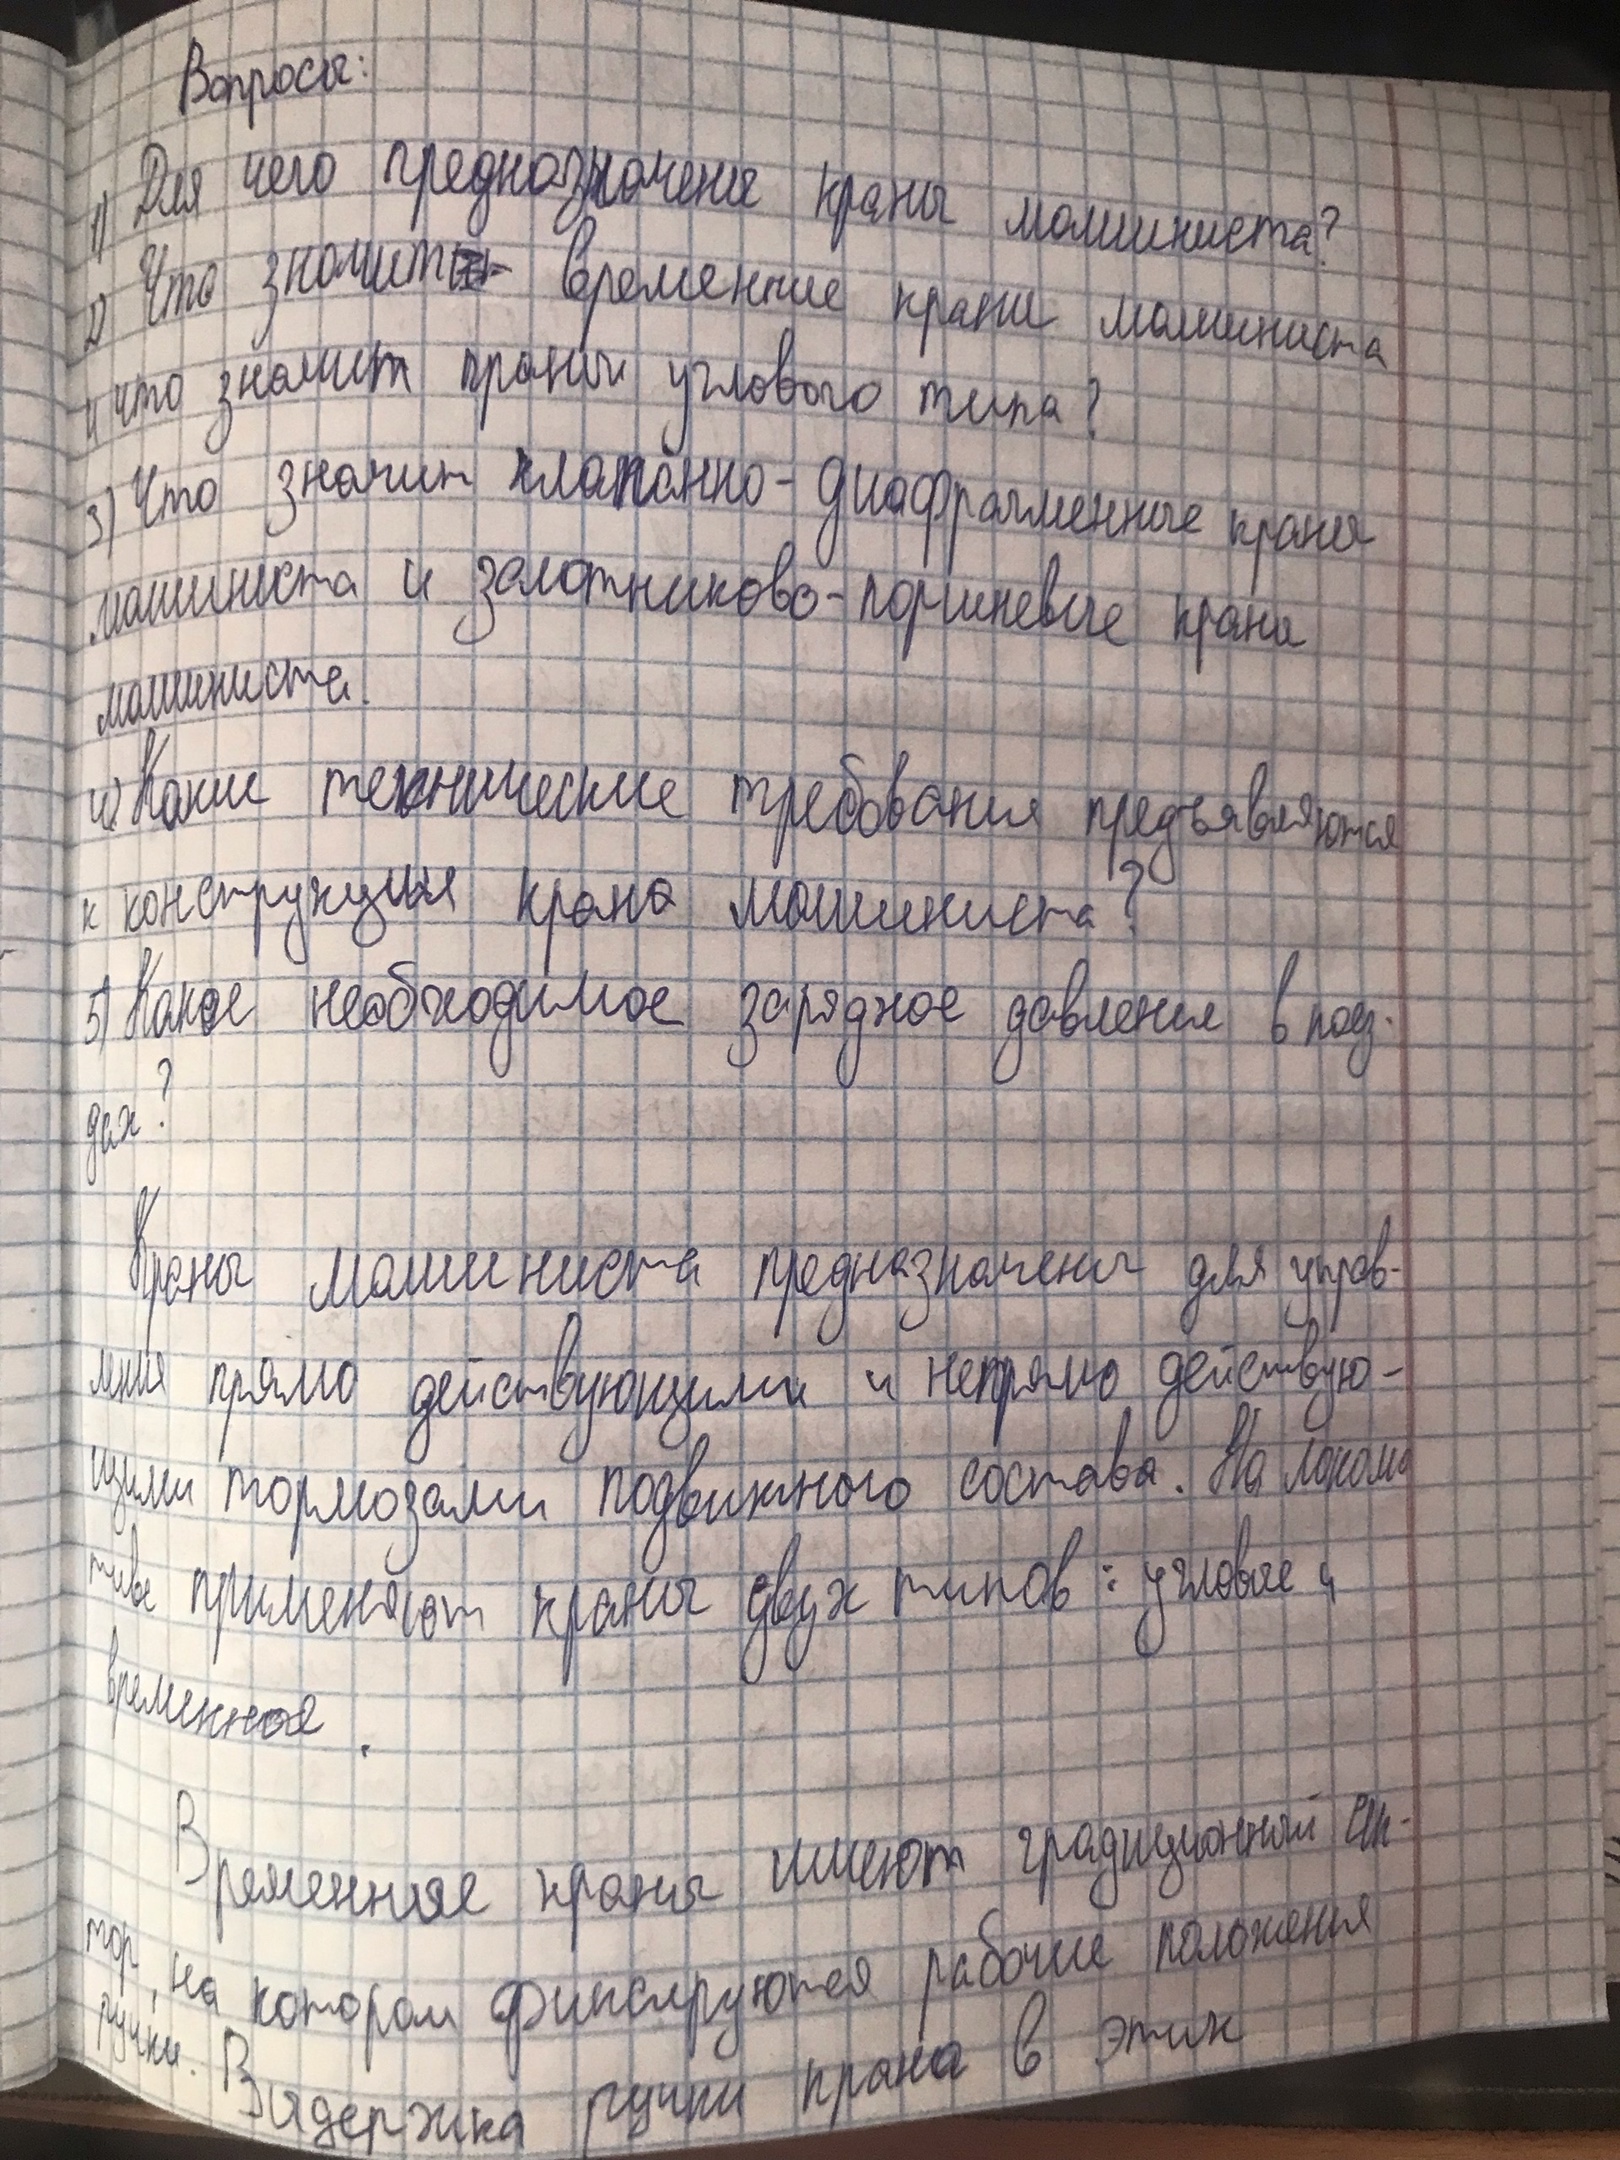 Вопросы:
1) Для чего предназначены краны машиниста?
2) Что значит временные краны машиниста
и что значит краны углового типа?
3) Что значит клапанно-диафрагменные краны
машиниста и золотниково-поршневые краны
машиниста.
4) Какие технические требования предъявляются
к конструкции крана машиниста?
5) Какое необходимое зарядное давление в поез-
дах?
Краны машиниста предназначены для управ-
ления прямо действующими и непрямо действую-
щими тормозами подвижного состава. На локомо
тиве применяют краны двух типов: угловые и
временные.
Временные краны имеют градиционный
тор, на котором фиксируются рабочие положения
ручки. Выдержка ручки крана в этих